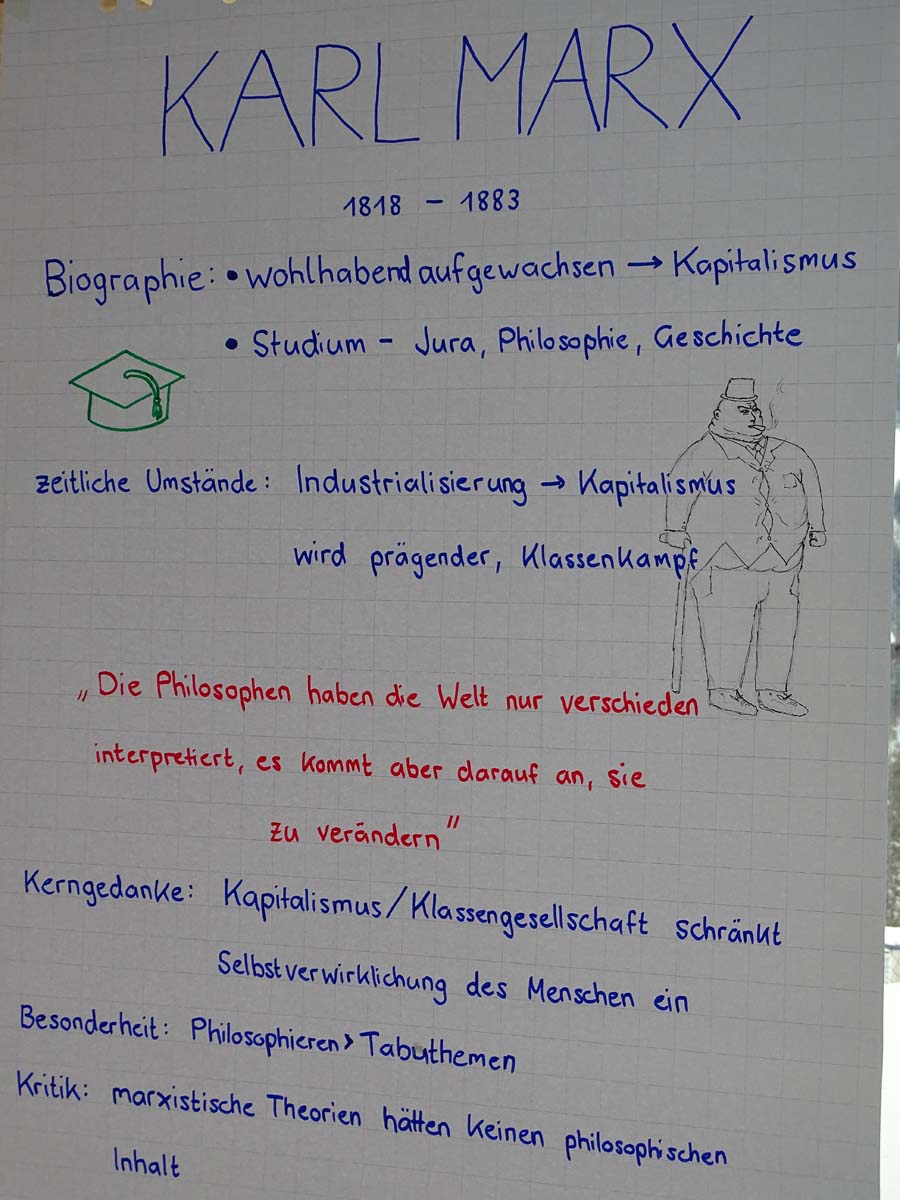 KARL MARX
1818 – 1883
Biographie: • wohlhabend aufgewachsen → Kapitalismus
• Studium – Jura, Philosophie, Geschichte
zeitliche Umstände: Industrialisierung → Kapitalismus
wird prägender, Klassenkampf
„Die Philosophen haben die Welt nur verschieden
interpretiert, es kommt aber darauf an, sie
zu verändern"
Kerngedanke: Kapitalismus/Klassengesellschaft schränkt
Selbstverwirklichung des Menschen ein
Besonderheit: Philosophieren > Tabuthemen
Kritik: marxistische Theorien hätten keinen philosophischen
Inhalt